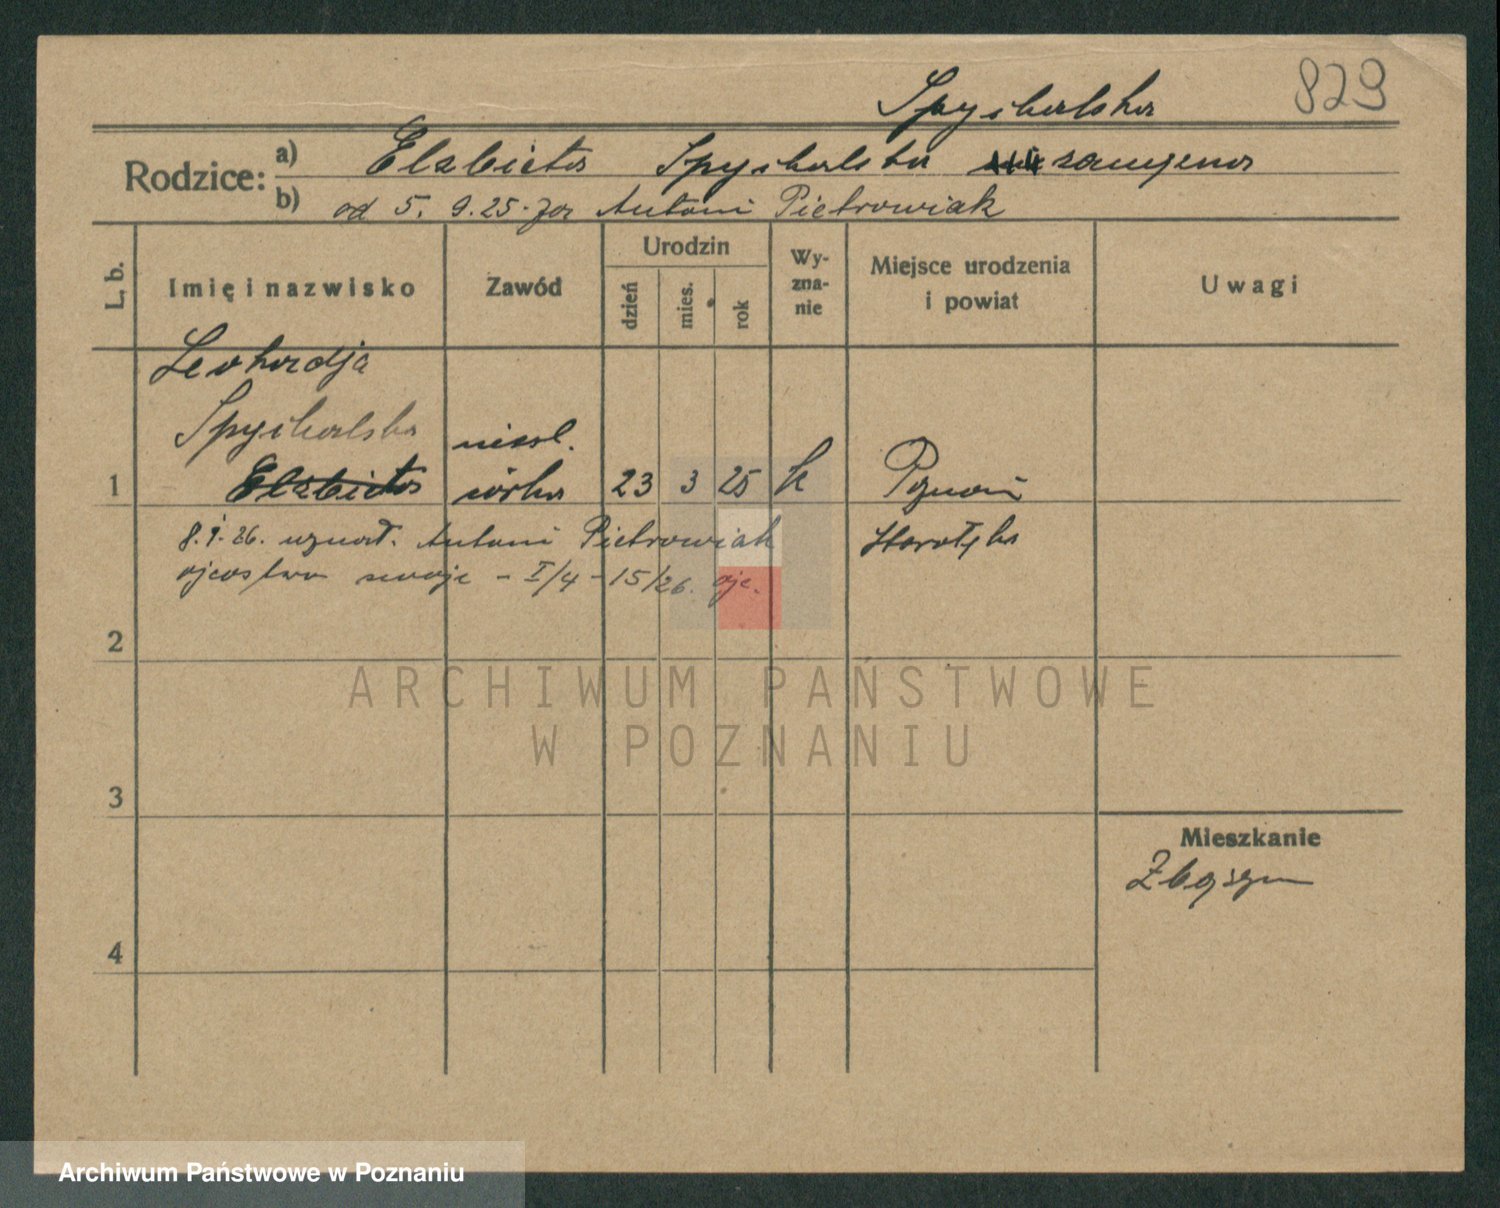 829
Spychalska
Rodzice: a) Elzbieta Spychalska zamężna
b) od 5. 9. 25. za Antoni Pietrowiak
L. b.
Imię i nazwisko
Zawód
Urodzin
dzień
mies.
rok
Wy-
zna-
nie
Miejsce urodzenia
i powiat
Uwagi
Leokadja
Spychalska nieśl.
1 Elzbieta córka 23 3 25 k Poznań
8. 1. 26. uznał. Antoni Pietrowiak
ojcostwo swoje - I/4 - 15/26.
2
ARCHIWUM PAŃSTWOWE
W POZNANIU
3
Mieszkanie
4
Archiwum Państwowe w Poznaniu